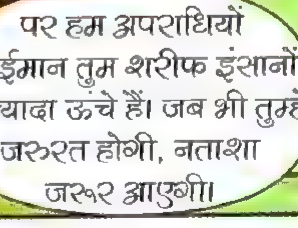 पर हम अपराधियों
ईमान तुम शरीफ इंसानों
यादा ऊंचे हैं। जब भी तुम्हे
जरुरत होगी, नताशा
जरूर आएगी।